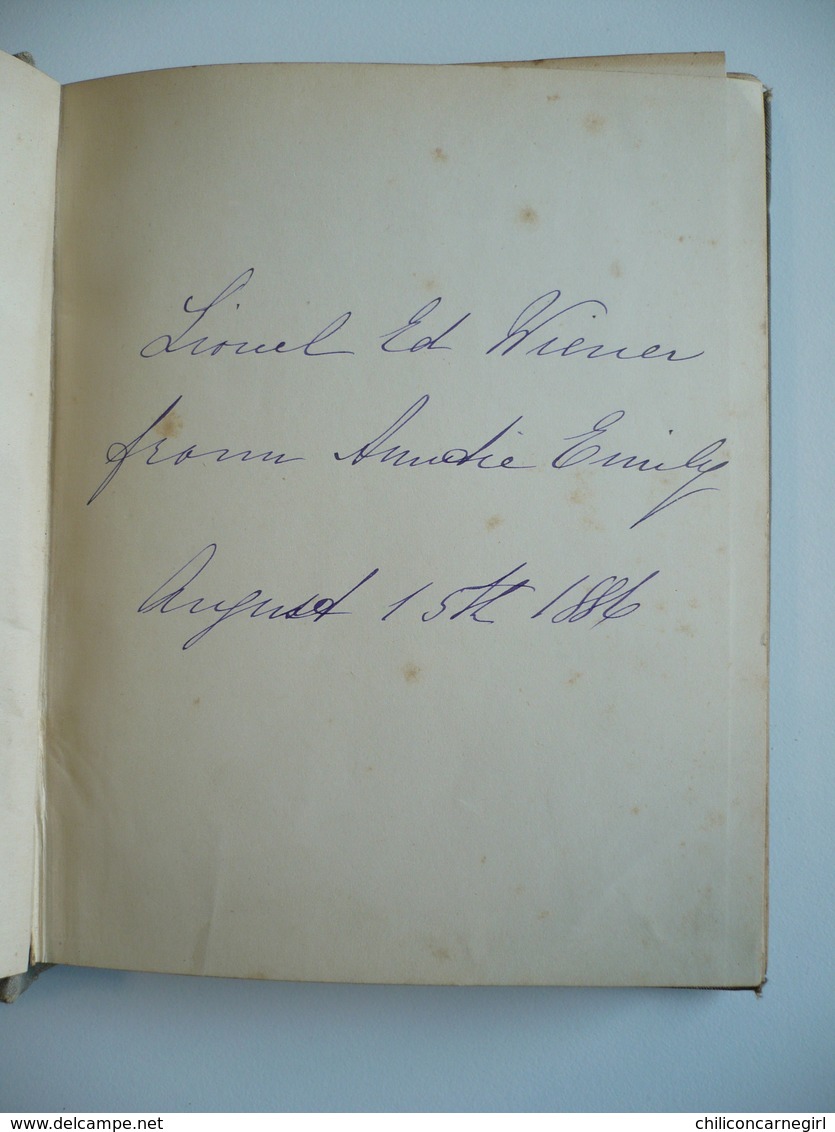 Lionel Ed Wiener
from Auntie Emily
August 15th 1886
delcampe.net
chiliconcarnegirl